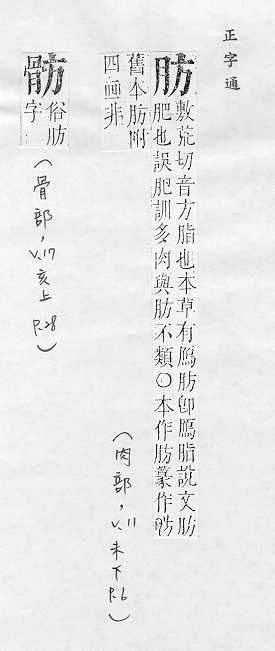 正字通
肪
敷荒切音方脂也本草有鴈肪卽鴈脂說文肪
肥也誤肥訓多肉與肪不類〇本作肪篆作
舊本肪附
四畫非
(肉部, v.11 未下 p.6)
俗肪
字
(骨部, v.17 亥上 p.28)